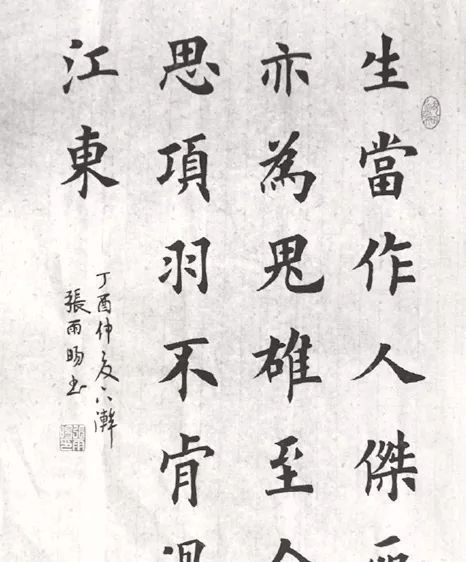 生當作人傑
亦為鬼雄至今
思項羽不肯過
江東
丁酉仲夏
張雨